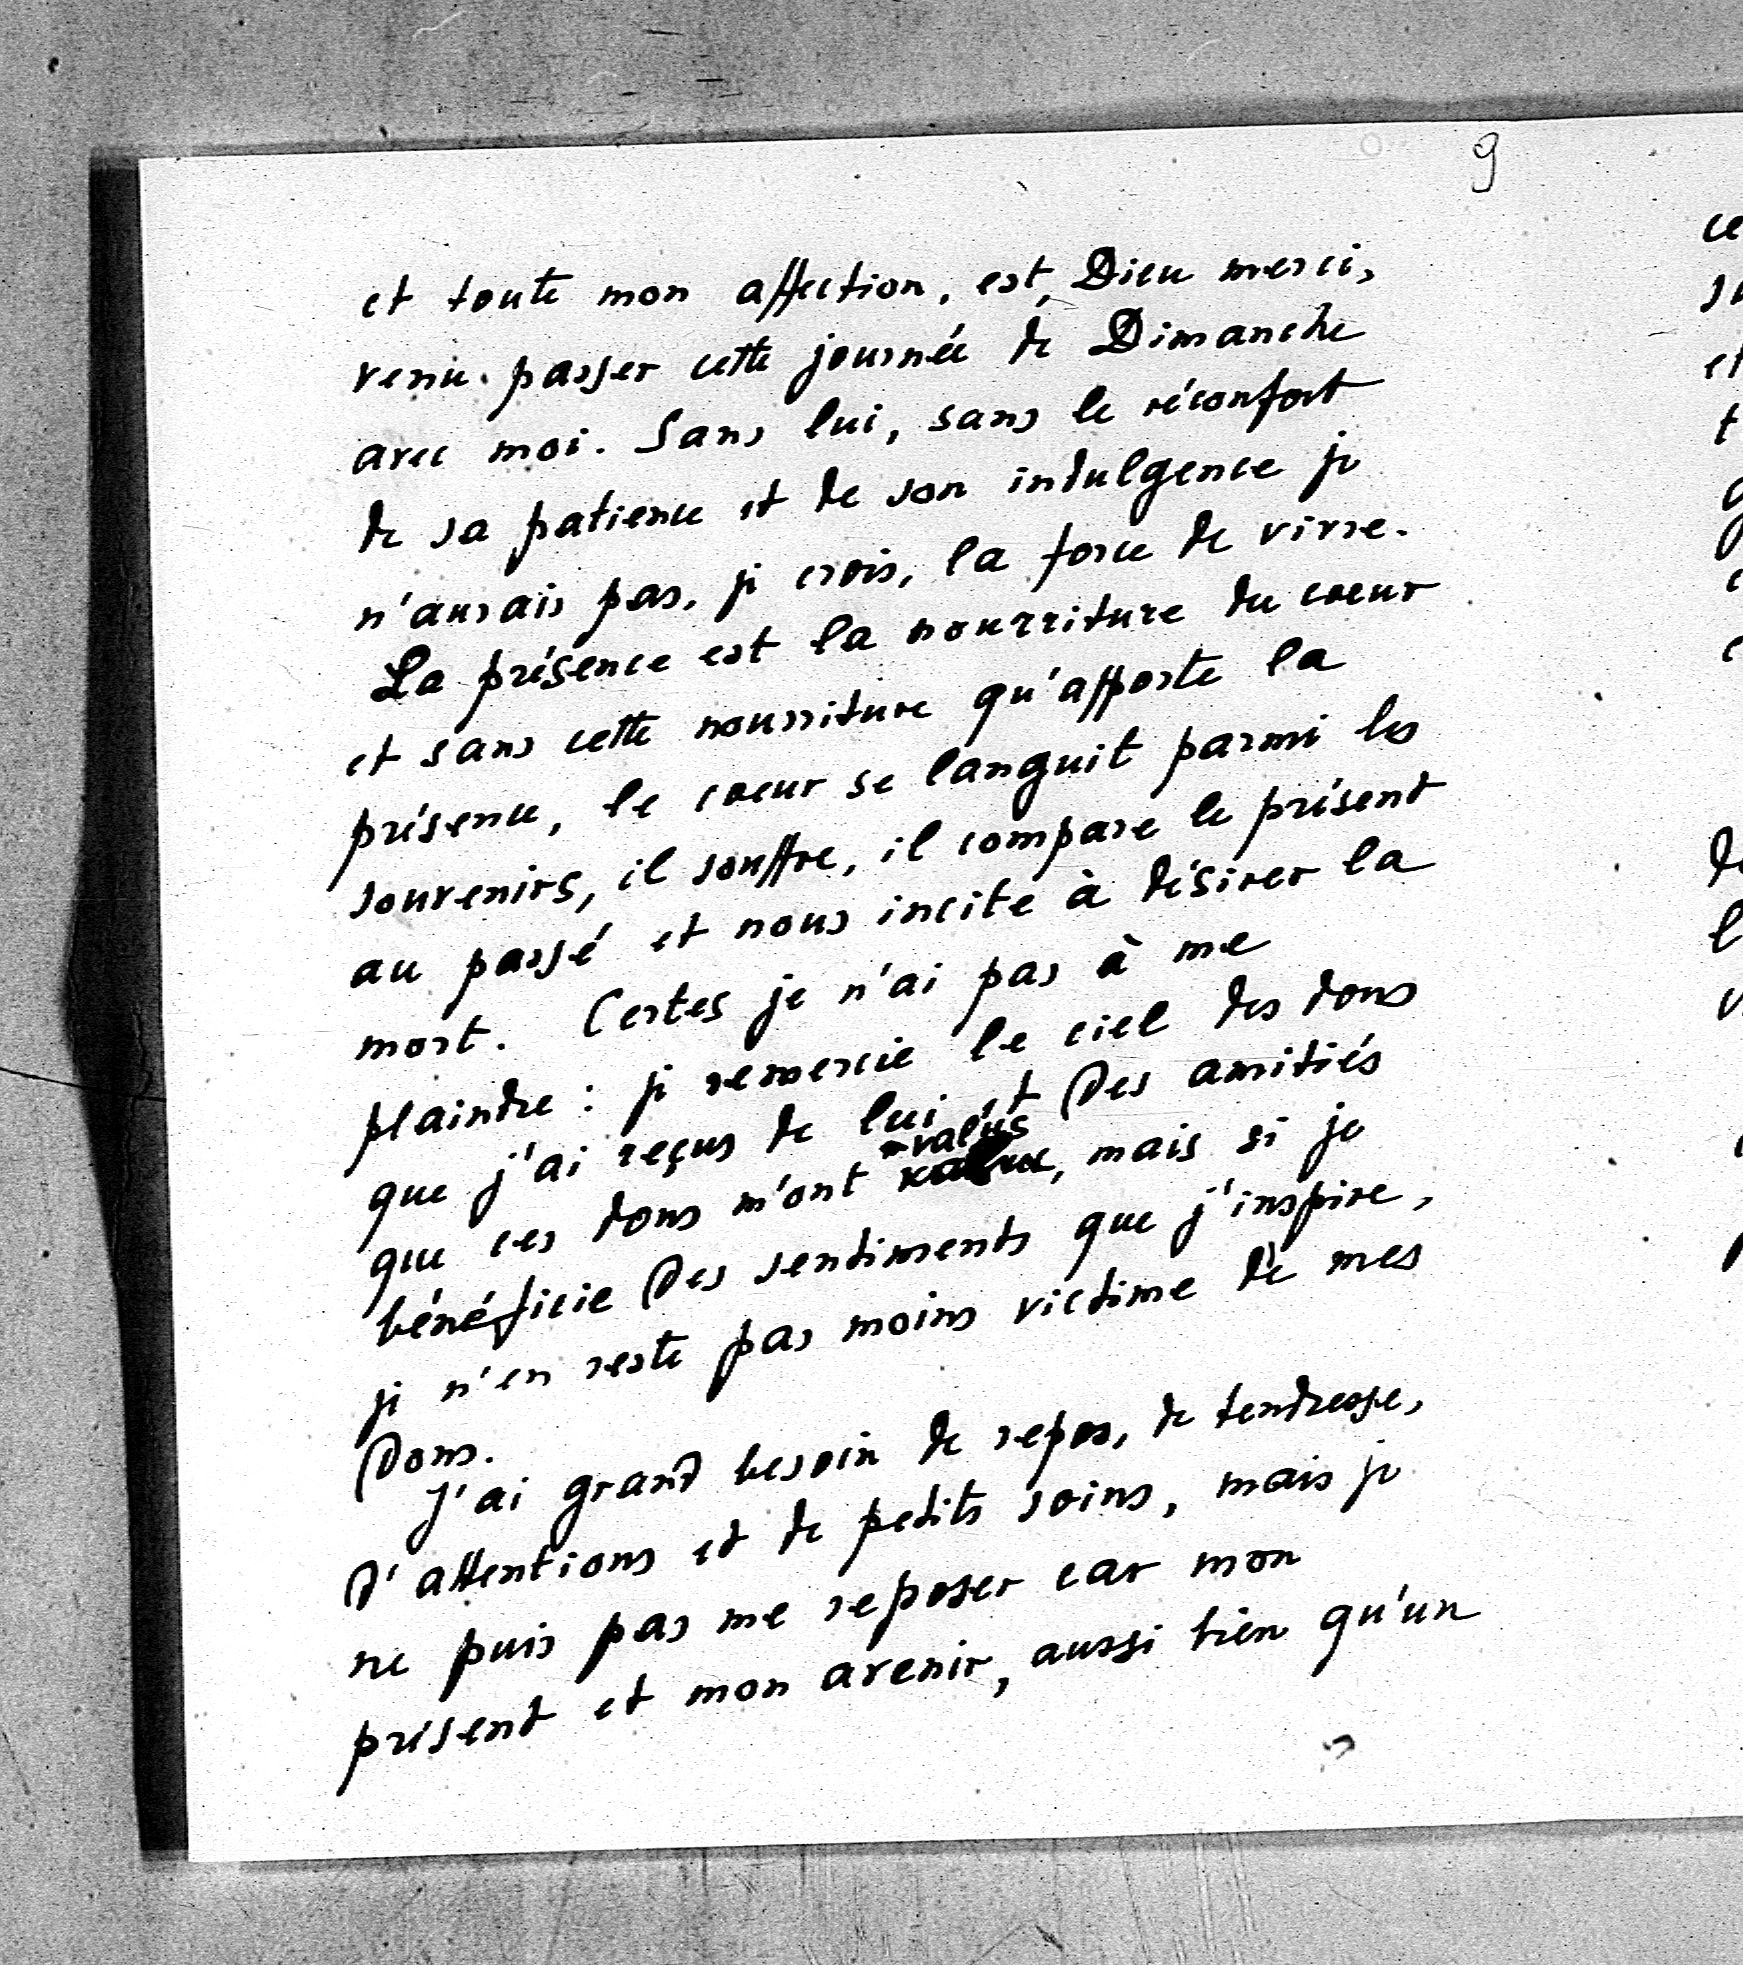 9
et toute mon affection, est, Dieu merci,
venu passer cette journée de Dimanche
avec moi. Sans lui, sans le réconfort
de sa patience et de son indulgence je
n'aurais pas, je crois, la force de vivre.
La présence est la nourriture du coeur
et sans cette nourriture qu'apporte la
présence, le coeur se languit parmi les
souvenirs, il souffre, il compare le présent
au passé et nous incite à désirer la
mort. Certes je n'ai pas à me
plaindre : je remercie le ciel des dons
que j'ai reçus de lui et des amitiés
valus
que ces dons m'ont, mais si je
bénéficie des sentiments que j'inspire,
je n'en reste pas moins victime de mes
dons.
J'ai grand besoin de repos, de tendresse,
d'attentions et de petits soins, mais je
ne puis pas me reposer car mon
présent et mon avenir, aussi bien qu'un